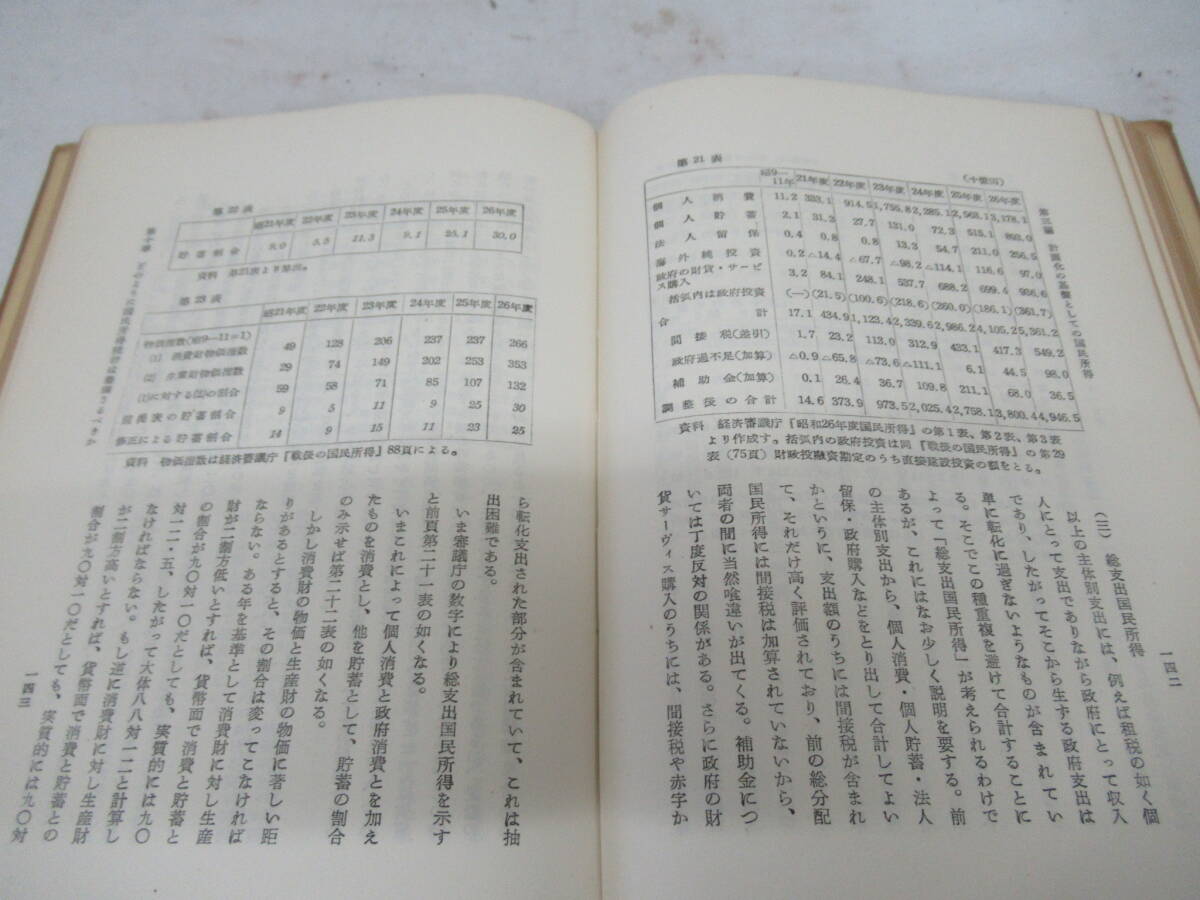 第三編 計画化の基盤としての国民所得
一四二
第21表
(十億円)
昭9―11年 21年度 22年度 23年度 24年度 25年度 26年度
個人消費 11.2 333.1 914.5 1,755.8 2,285.1 2,568.1 3,178.1
個人貯蓄 2.1 31.3 27.7 131.0 72.3 515.1 893.0
法人留保 0.4 0.8 0.8 13.3 54.7 211.0 256.5
海外純投資 0.2 △14.4 △67.7 △98.2 △114.1 116.6 97.0
政府の財貨・サービス購入 3.2 84.1 248.1 537.7 688.2 699.4 936.6
括弧内は政府投資 (―) (21.5) (100.6) (218.6) (260.0) (186.1) (361.7)
合計 17.1 434.9 1,123.4 2,339.6 2,986.2 4,105.2 5,361.2
間接税(差引) 1.7 23.2 113.0 312.9 433.1 417.3 549.2
政府過不足(加算) △0.9 △65.8 △73.6 △111.1 6.1 44.5 98.0
補助金(加算) 0.1 26.4 36.7 109.8 211.1 68.0 36.5
調整後の合計 14.6 373.9 973.5 2,025.4 2,758.1 3,800.4 4,946.5
資料 経済審議庁『昭和26年度国民所得』の第1表、第2表、第3表
より作成す。括弧内の政府投資は同『戦後の国民所得』の第29
表(75頁)財政投融資勘定のうち直接建設投資の額をとる。
(三) 総支出国民所得
以上の主体別支出には、例えば租税の如く個
人にとって支出でありながら政府にとって収入
であり、したがってそこから生する政府支出は
単に転化に過ぎないようなものが含まれてい
る。そこでこの種重複を避けて合計することに
よって「総支出国民所得」が考えられるわけで
あるが、これにはなお少しく説明を要する。前
の主体別支出から、個人消費・個人貯蓄・法人
留保・政府購入などをとり出して合計してよい
かというに、支出額のうちには間接税が含まれ
て、それだけ高く評価されており、前の総分配
国民所得には間接税は加算されていないから、
両者の間に当然喰違いが出てくる。補助金につ
いては丁度反対の関係がある。さらに政府の財
貨サーヴィス購入のうちには、間接税や赤字か
第22表
昭21年度 22年度 23年度 24年度 25年度 26年度
貯蓄割合 9.0 5.5 11.3 9.1 25.1 30.0
資料 第21表より算出。
第23表
昭21年度 22年度 23年度 24年度 25年度 26年度
物価指数(昭9―11=1)
(1) 消費財物価指数 49 128 206 237 237 266
(2) 生産財物価指数 29 74 149 202 253 353
(1)に対する(2)の割合 59 58 71 85 107 132
現実の貯蓄割合 9 5 11 9 25 30
修正による貯蓄割合 14 9 15 11 23 25
資料 物価指数は経済審議庁『戦後の国民所得』88頁による。
ら転化支出された部分が含まれていて、これは抽
出困難である。
いま審議庁の数字により総支出国民所得を示す
と前頁第二十一表の如くなる。
いまこれによって個人消費と政府消費とを加え
たものを消費とし、他を貯蓄として、貯蓄の割合
のみ示せば第二十二表の如くなる。
しかし消費財の物価と生産財の物価に著しい距
りがあるとすると、その割合は変ってこなければ
ならない。ある年を基準として消費財に対し生産
財が二割方低いとすれば、貨幣面で消費と貯蓄と
の割合が九〇対一〇だとしても、実質的には九〇
対一二・五、したがって大体八八対一二と計算し
なければならない。もし逆に消費財に対し生産財
が二割方高いとすれば、貨幣面で消費と貯蓄との
割合が九〇対一〇だとしても、実質的には九〇対
一四三